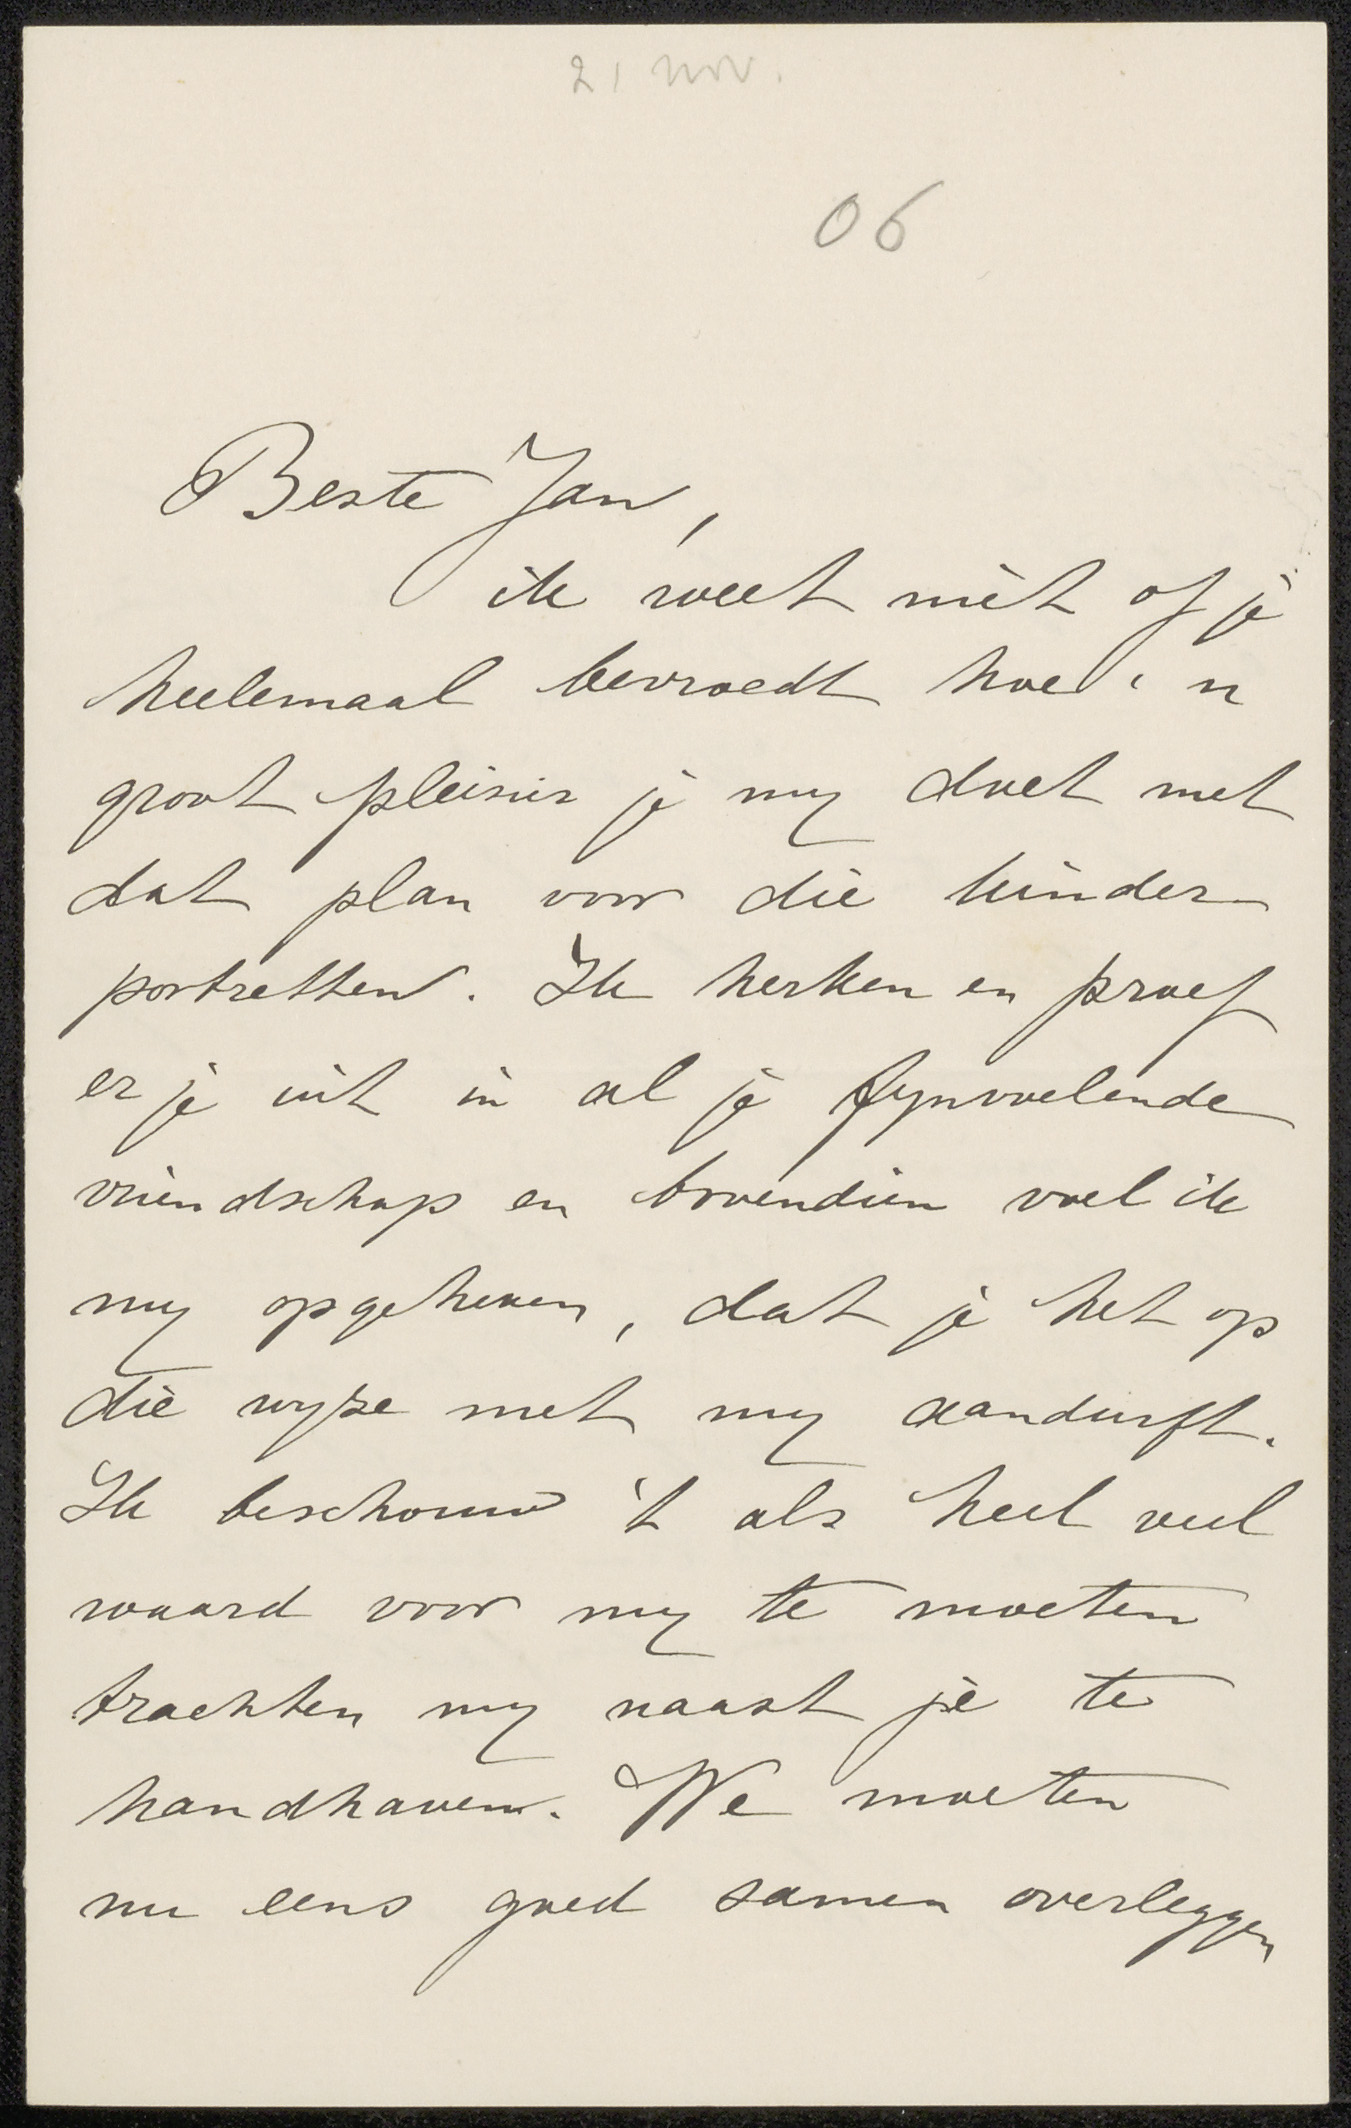 21 nov.
06
Beste Jan,
ik weet niet of je
heelemaal bevroedt hoe 'n
groot pleisier je my doet met
dat plan voor die kinder-
portretten. Ik herken en proef
er je uit in al je fynvoelende
vriendschap en bovendien voel ik
my opgeheven, dat je het op
die wyze met my aandurft.
Ik beschouw 't als heel veel
waard voor my te moeten
trachten my naast je te
handhaven. We moeten
nu eens goed samen overleggen